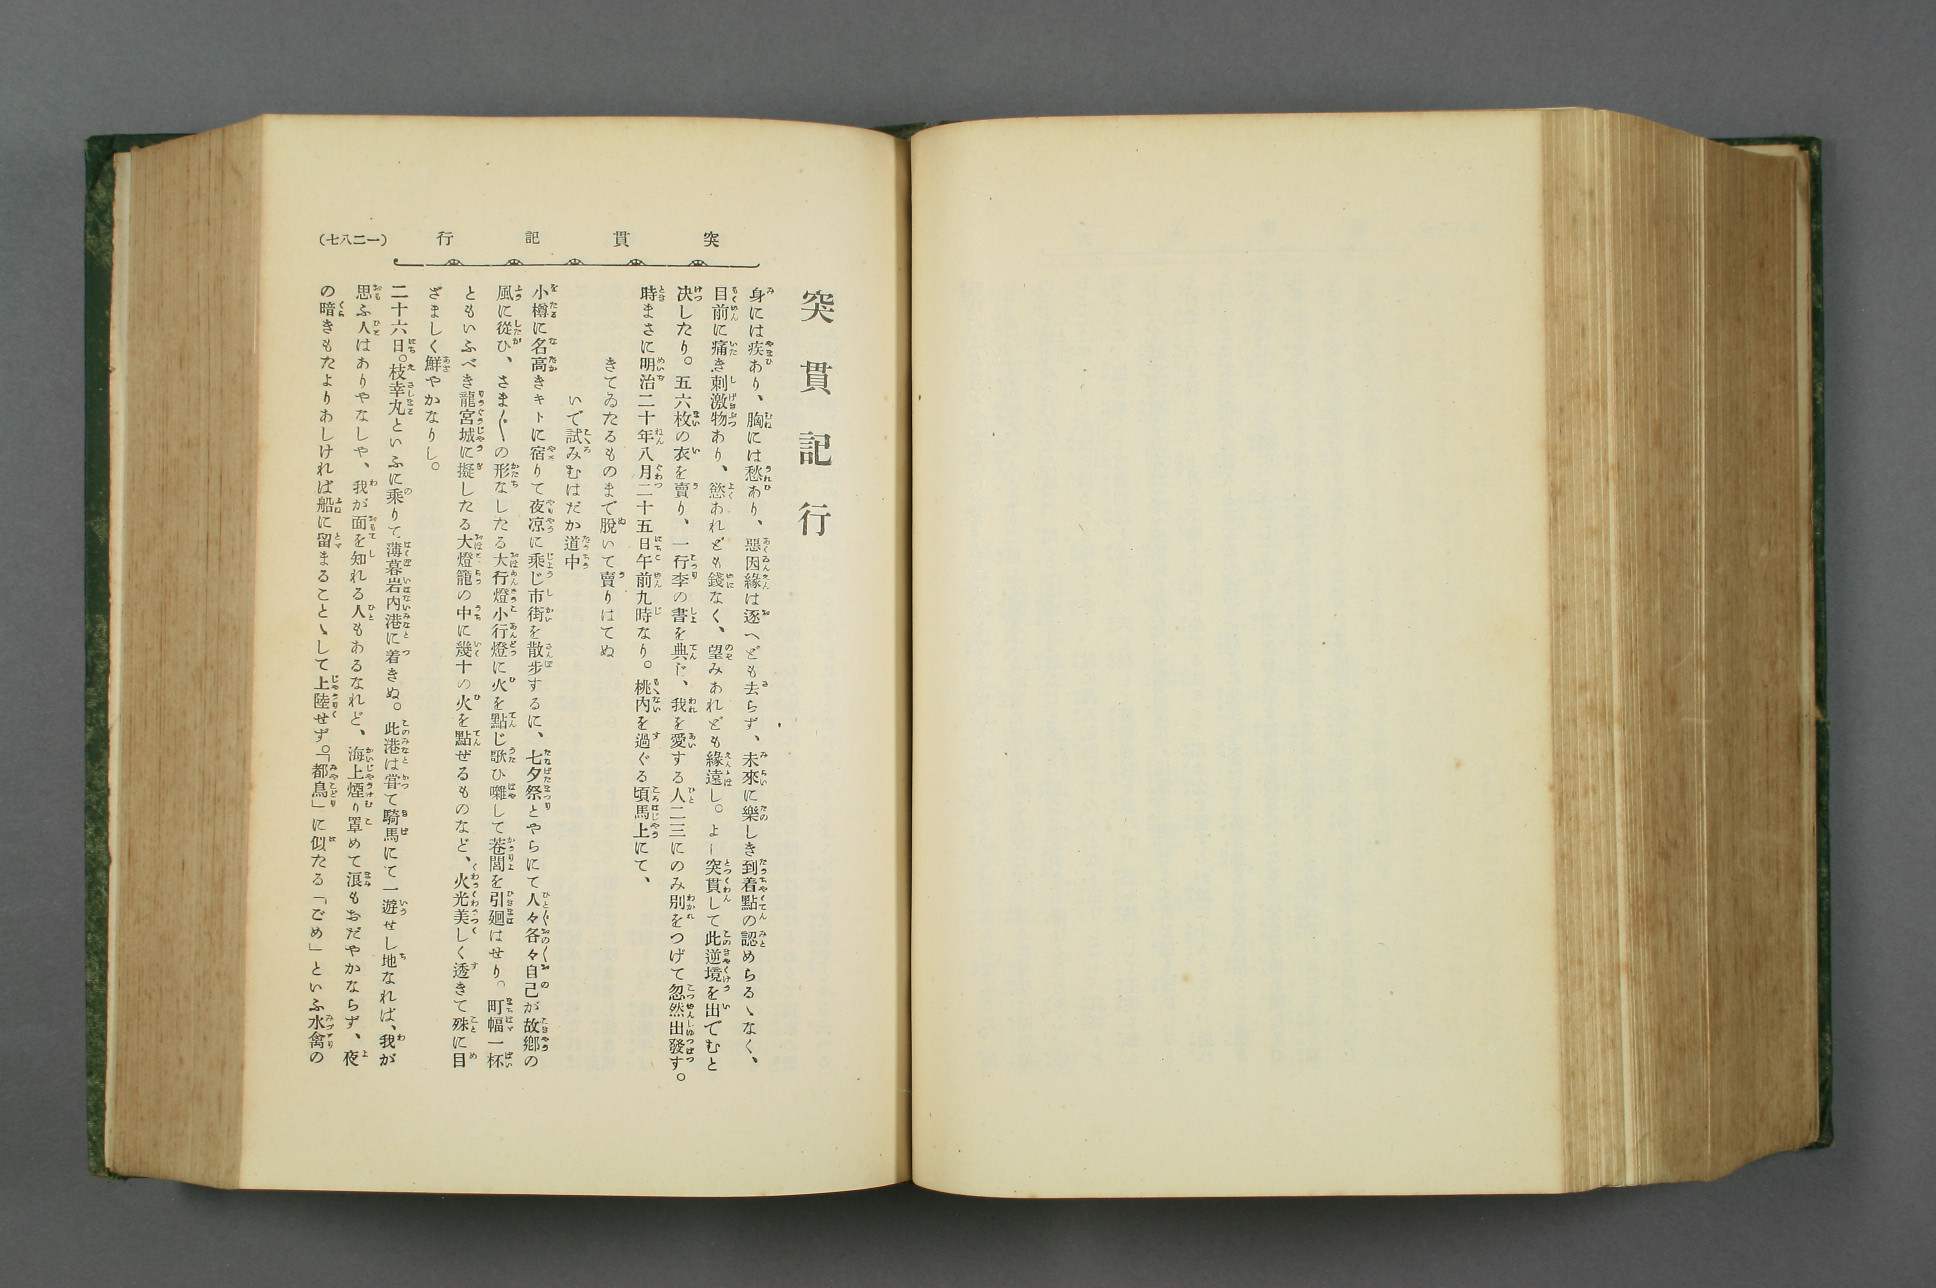 突貫記行
(一二八七)
突貫記行
身には疾あり、胸には愁あり、惡因緣は逐へども去らず、未來に樂しき到着點の認めらるゝなく、
目前に痛き刺激物あり、慾あれども錢なく、望みあれども緣遠し。よし突貫して此逆境を出でむと
决したり。五六枚の衣を賣り、一行李の書を典じ、我を愛する人二三にのみ別をつげて忽然出發す。
時まさに明治二十年八月二十五日午前九時なり。桃内を過ぐる頃馬上にて、
きてゐたるものまで脫いで賣りはてぬ
いで試みむはだか道中
小樽に名高きキトに宿りて夜凉に乘じ市街を散步するに、七夕祭とやらにて人々各々自己が故鄉の
風に從ひ、さま〴〵の形なしたる大行燈小行燈に火を點じ歌ひ囃して巷閭を引廻はせり。町幅一杯
ともいふべき龍宮城に擬したる大燈籠の中に幾十の火を點ぜるものなど、火光美しく透きて殊に目
ざましく鮮やかなりし。
二十六日。枝幸丸といふに乘りて薄暮岩內港に着きぬ。此港は甞て騎馬にて一遊せし地なれば、我が
思ふ人はありやなしや、我が面を知れる人もあるなれど、海上煙り罩めて浪もおだやかならず、夜
の暗きもたよりあしければ船に留まることゝして上陸せず。「都鳥」に似たる「ごめ」といふ水禽の